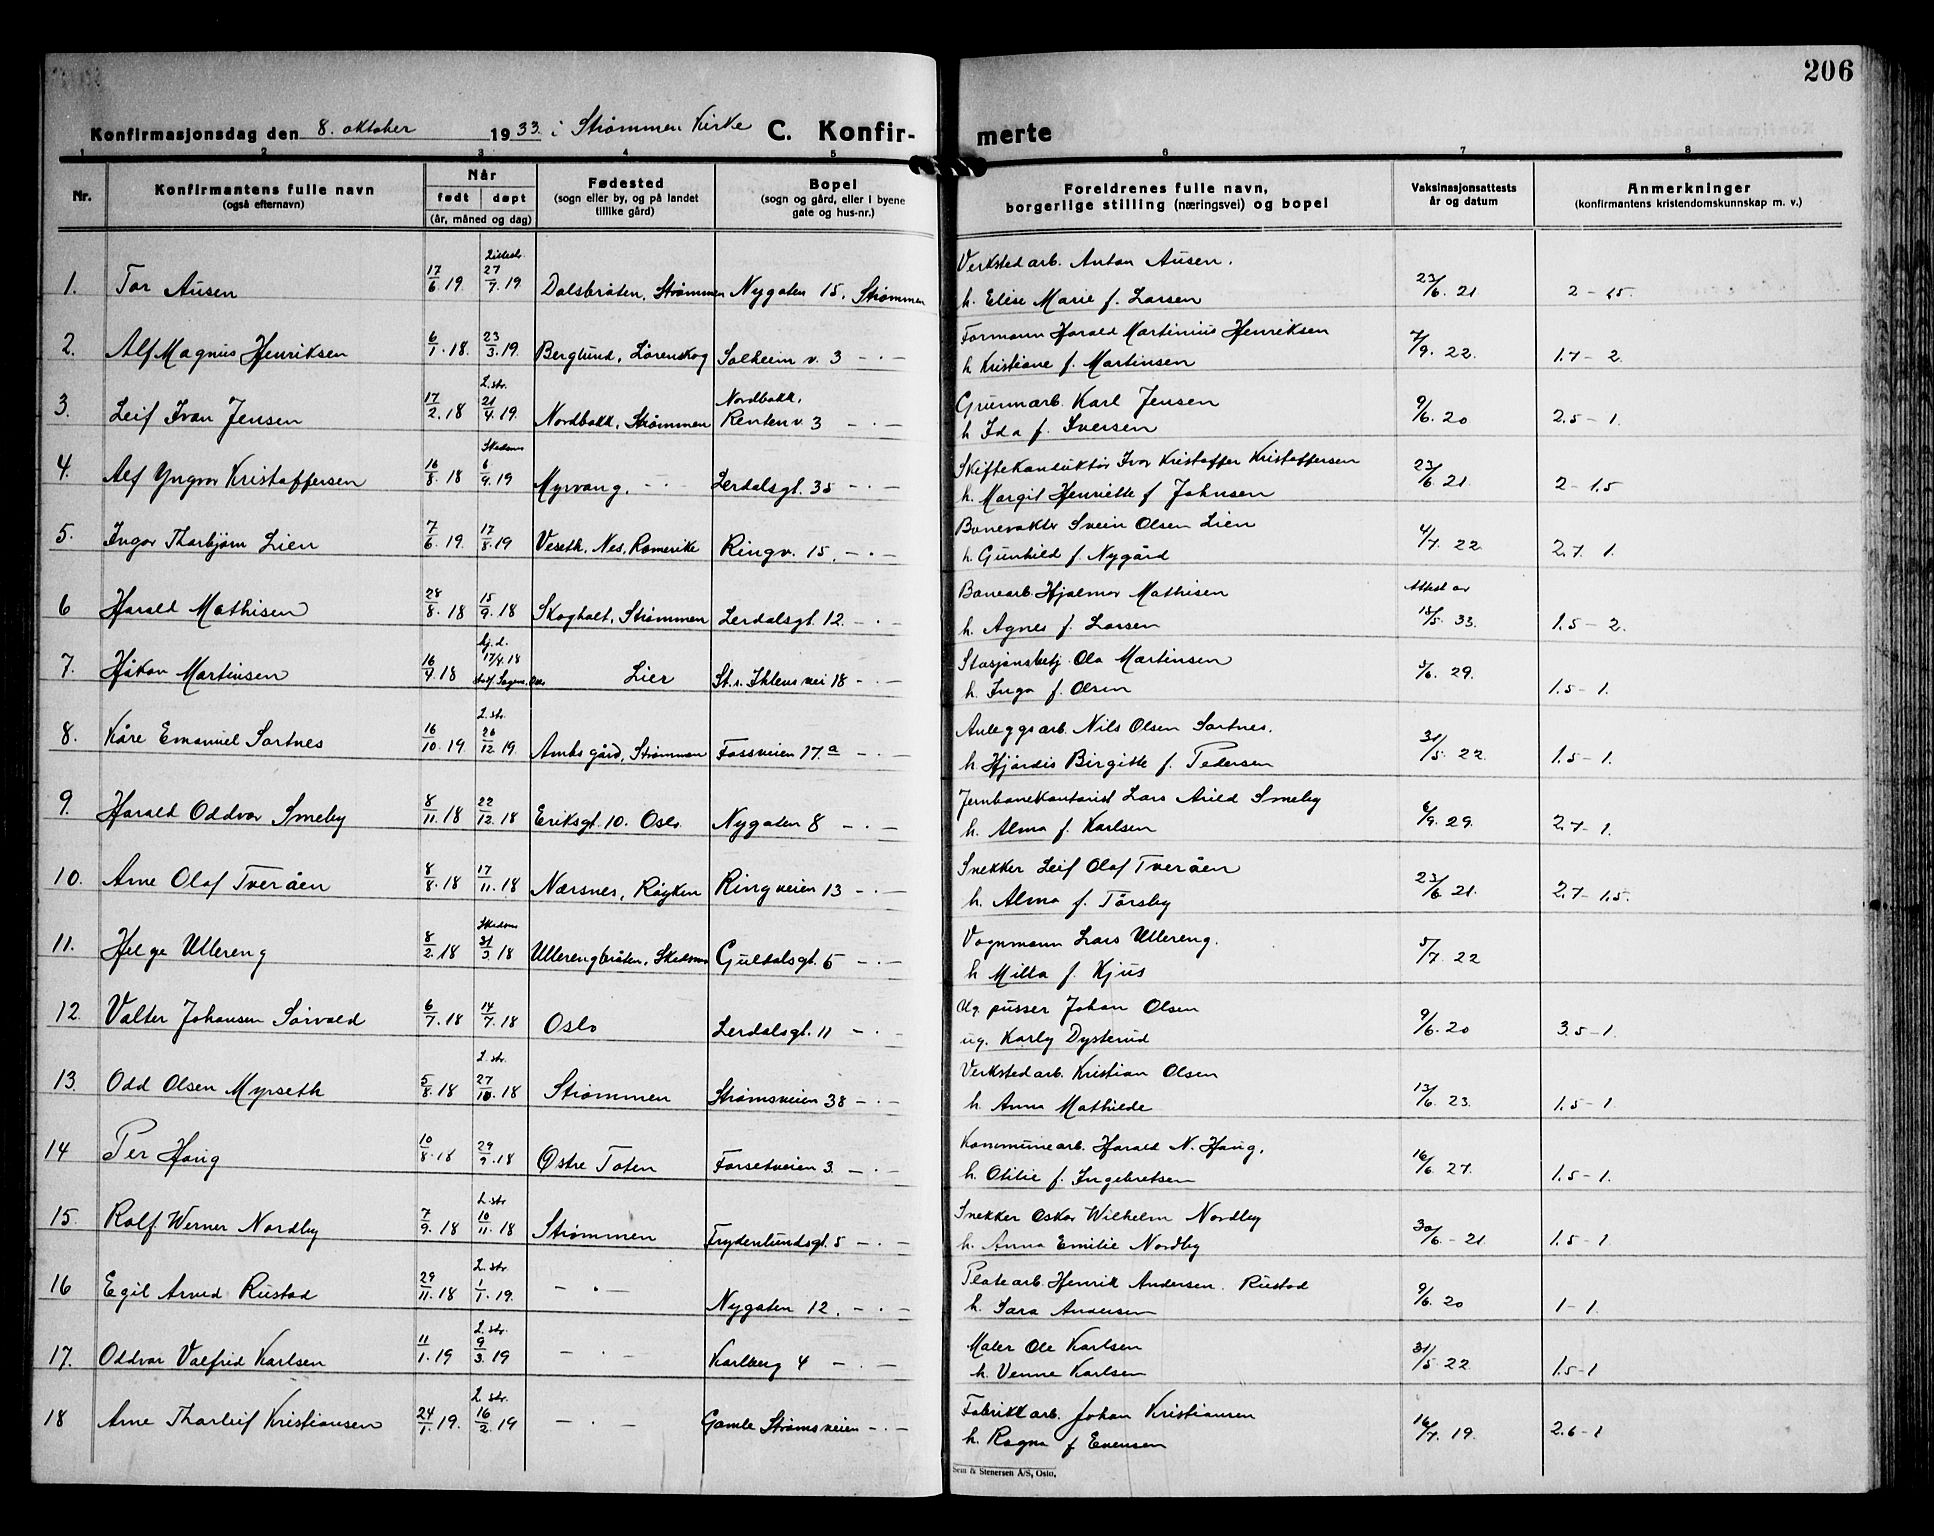 206
Konfirmasjonsdag den 8. oktober 1933. i Strømmen Kirke C. Konfir- merte
1 2 3 4 5 6 7 8
Nr. Konfirmantens fulle navn (også efternavn) Når født døpt (år, måned og dag) Fødested (sogn eller by, og på landet tillike gård) Bopel (sogn og gård, eller i byene gate og hus-nr.) Foreldrenes fulle navn, borgerlige stilling (næringsvei) og bopel Vaksinasjonsattests år og datum Anmerkninger (konfirmantens kristendomskunnskap m. v.)
1. Tor Ausen 17/6 19. 27/7 19 Dalsbråten, Strømmen Nygaten 15. Strømmen Verkstedarb. Anton Ausen. 23/6. 21 2 - 1.5.
h. Elise Marie f. Larsen
2. Alf Magnus Henriksen 6/1. 18. 23/3. 19. Berglund, Lørenskog Solheim v. 3 - . - Formann Harald Martinius Henriksen 7/9. 22. 1.7 - 2.
h Kristiane f. Martinsen
L. str.
3. Leif Ivan Jensen 17/2. 18 21/4. 19. Nordbakk, Strømmen Nordbakk, Renten v. 3 - . - Grunnarb. Karl Jensen 9/6. 20 2.5 - 1.
h Ida f. Iversen
Skedsmo
4. Alf Yngvar Kristoffersen 16/8. 18 6/4. 19 Myrvang, - . - Lerdalsgt. 35 - . - Skiftekonduktør Ivar Kristoffer Kristoffersen 23/6 21. 2 - 1.5
h. Margit Henriette f Johnsen
5. Ingar Thorbjørn Lien 7/6. 19. 17/8. 19 Veseth, Nes, Romerike Ringv. 15. - . - Banevakter Svein Olsen Lien 4/7. 22. 2.7 1.
h. Gunhild f. Nygård
6 Harald Mathisen 28/8. 18 15/9. 18 Skogholt, Strømmen Lerdalsgt. 12. - . - Banearb. Hjalmar Mathisen Attest av 18/5. 33. 1.5 - 2.
h. Agnes f. Larsen
hj. d.
7. Håkon Martinsen 16/4. 18 17/4. 18 Lier St. r. Ihlens vei 18 - . - Stasjonsbetj. Ola Martinsen 5/6. 29. 1.5 - 1.
h. Inga f. Olsen
L. str.
8. Kåre Emanuel Sortnes 16/10. 19. 26/12. 19. Ambs gård, Strømmen Fossveien 17.a - . - Anleggsarb. Nils Olsen Sortnes. 31/5. 22. 1.5 - 1.
h. Hjördis Birgitte f. Pedersen
9. Harald Oddvar Smeby 8/11. 18 22/12. 18 Eriksgt. 10. Oslo. Nygaten 8 - . - Jernbanekontorist Lars Arild Smeby 6/9. 29. 2.7 - 1.
h. Alma f. Karlsen
10. Arne Olaf Tveråen 8/8. 18 17/11. 18 Nærsnes, Røyken Ringveien 13 - . - Snekker Leif Olaf Tveråen 23/6 21. 2.7 - 1.5.
h. Alma f. Törsby
Skedsmo
11. Helge Ullereng 8/2. 18 31/3. 18 Ullerengbråten, Skedsmo Guldalsgt. 5 - . - Vognmann Lars Ullereng. 5/7. 22
h Milla f. Kjus
12. Valter Johansen Sörvald 6/7. 18 14/7. 18 Oslo Lerdalsgt. 11 - . - Ug. pusser Johan Olsen 9/6. 20 3.5 - 1.
ug. Karly Dysterud
L. str.
13. Odd Olsen Myrseth 5/8. 18 27/10. 18 Strømmen Strømsveien 38 - . - Verkstedarb. Kristian Olsen 13/6. 23. 1.5 - 1.
h. Anna Mathilde
14 Per Haug 10/8. 18 29/9. 18 Østre Toten Forsetveien 3. - . - Kommunearb. Harald N. Haug. 16/6. 27. 1.5 - 1.
h. Otilie f. Ingebretsen
L. str
15. Rolf Werner Nordby 7/9. 18 10/11. 18 Strømmen Frydenlundsgt. 5 - . - Snekker Oskar Wilhelm Nordby 30/6 - 21. 1.5 - 1.
h. Anna Emilie Nordby
L. str
16 Egil Arved Rustad 29/11. 18 1/1. 19. - . - Nygaten 12. - . - Platearb. Henrik Andersen. Rustad 9/6. 20 1 - 1.
h. Sara Andersen
L. str.
17. Oddvar Valfrid Karlsen 11/1. 19 9/3. 19 - . - Karlberg 4 - . - Maler Ole Karlsen 31/5 22 1.5 - 1
h. Venne Karlsen
L. str.
18 Arne Tharleif Kristiansen 24/1. 19. 16/2. 19 - . - Gamle Strømsveien - . - Fabrikkarb. Johan Kristiansen 16/7. 19. 2.6 - 1
h. Ragna f Evensen
Sem & Stenersen A/S, Oslo.